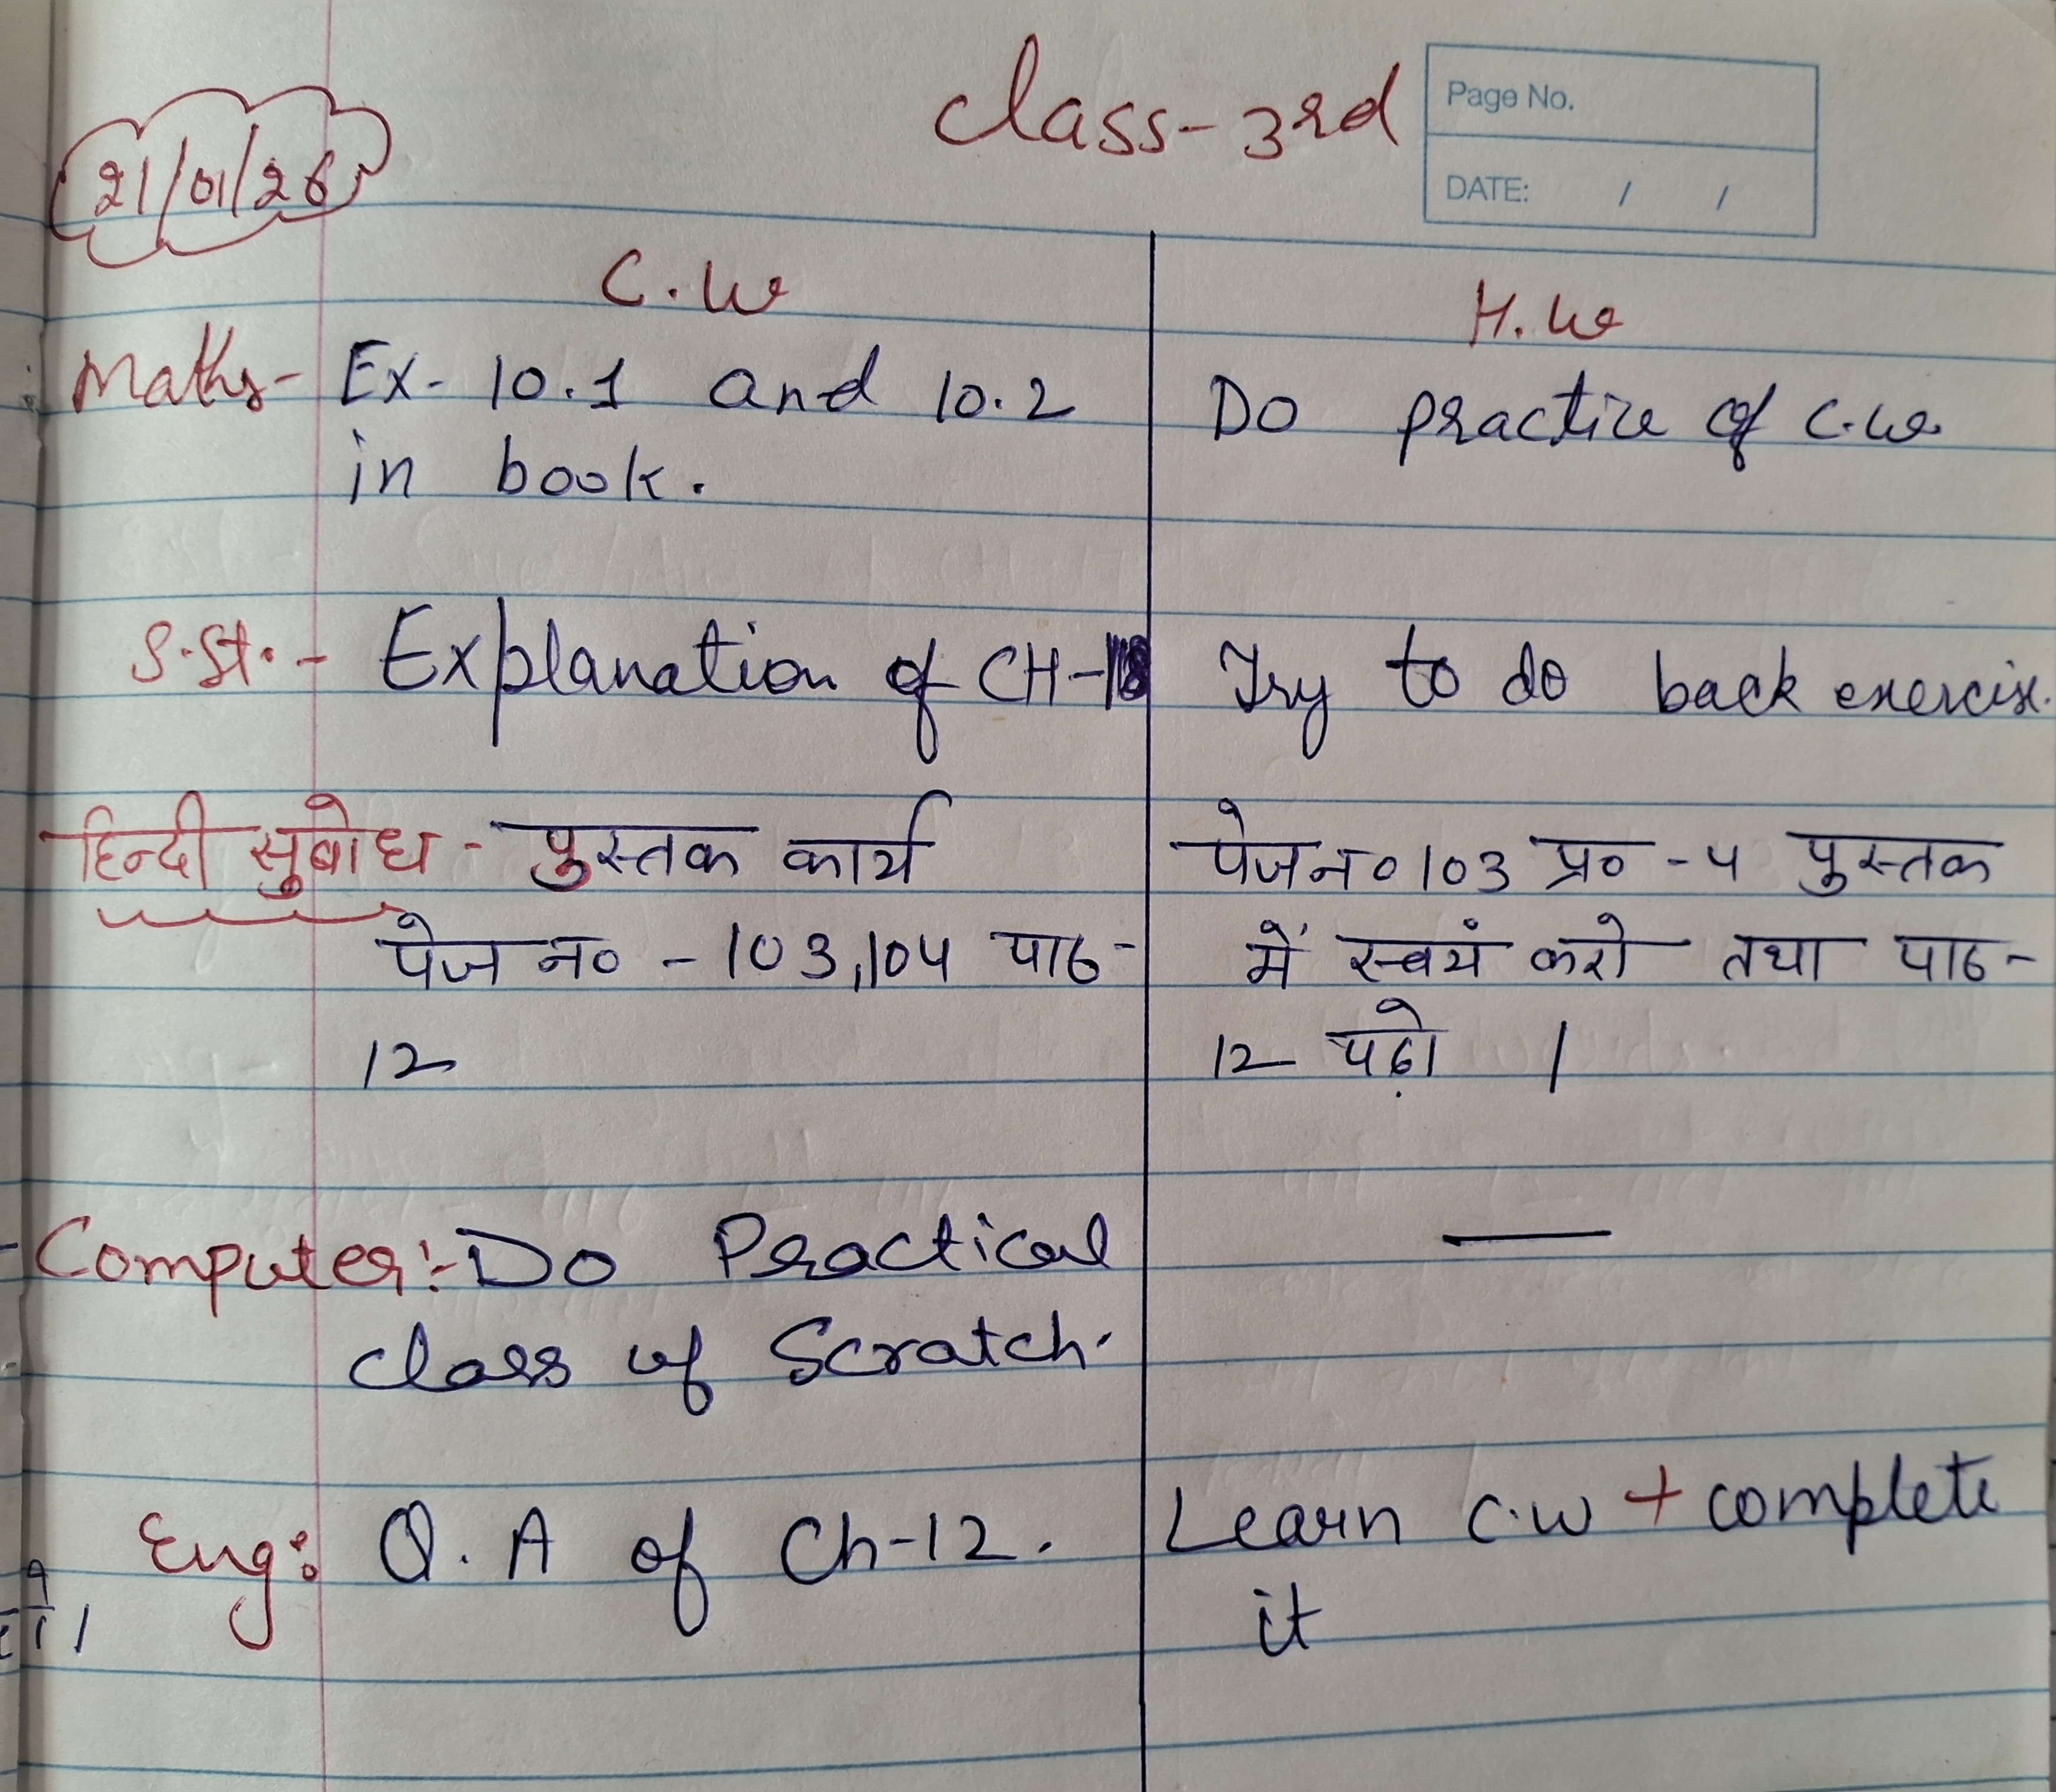 class-3rd
Page No.
DATE: / /
21/01/26
C.W
H.W
Maths- Ex- 10.1 and 10.2
in book.
Do practice of c.w.
S.St.- Explanation of CH-18
Try to do back exercise.
हिन्दी सुबोध - पुस्तक कार्य
पेज न० - 103,104 पाठ-
12
पेज न० 103 प्र० -4 पुस्तक
में स्वयं करो तथा पाठ-
12 पढ़ो ।
Computer:- Do Practical
class of Scratch.
—
Eng: Q.A of Ch-12.
Learn c.w + complete
it